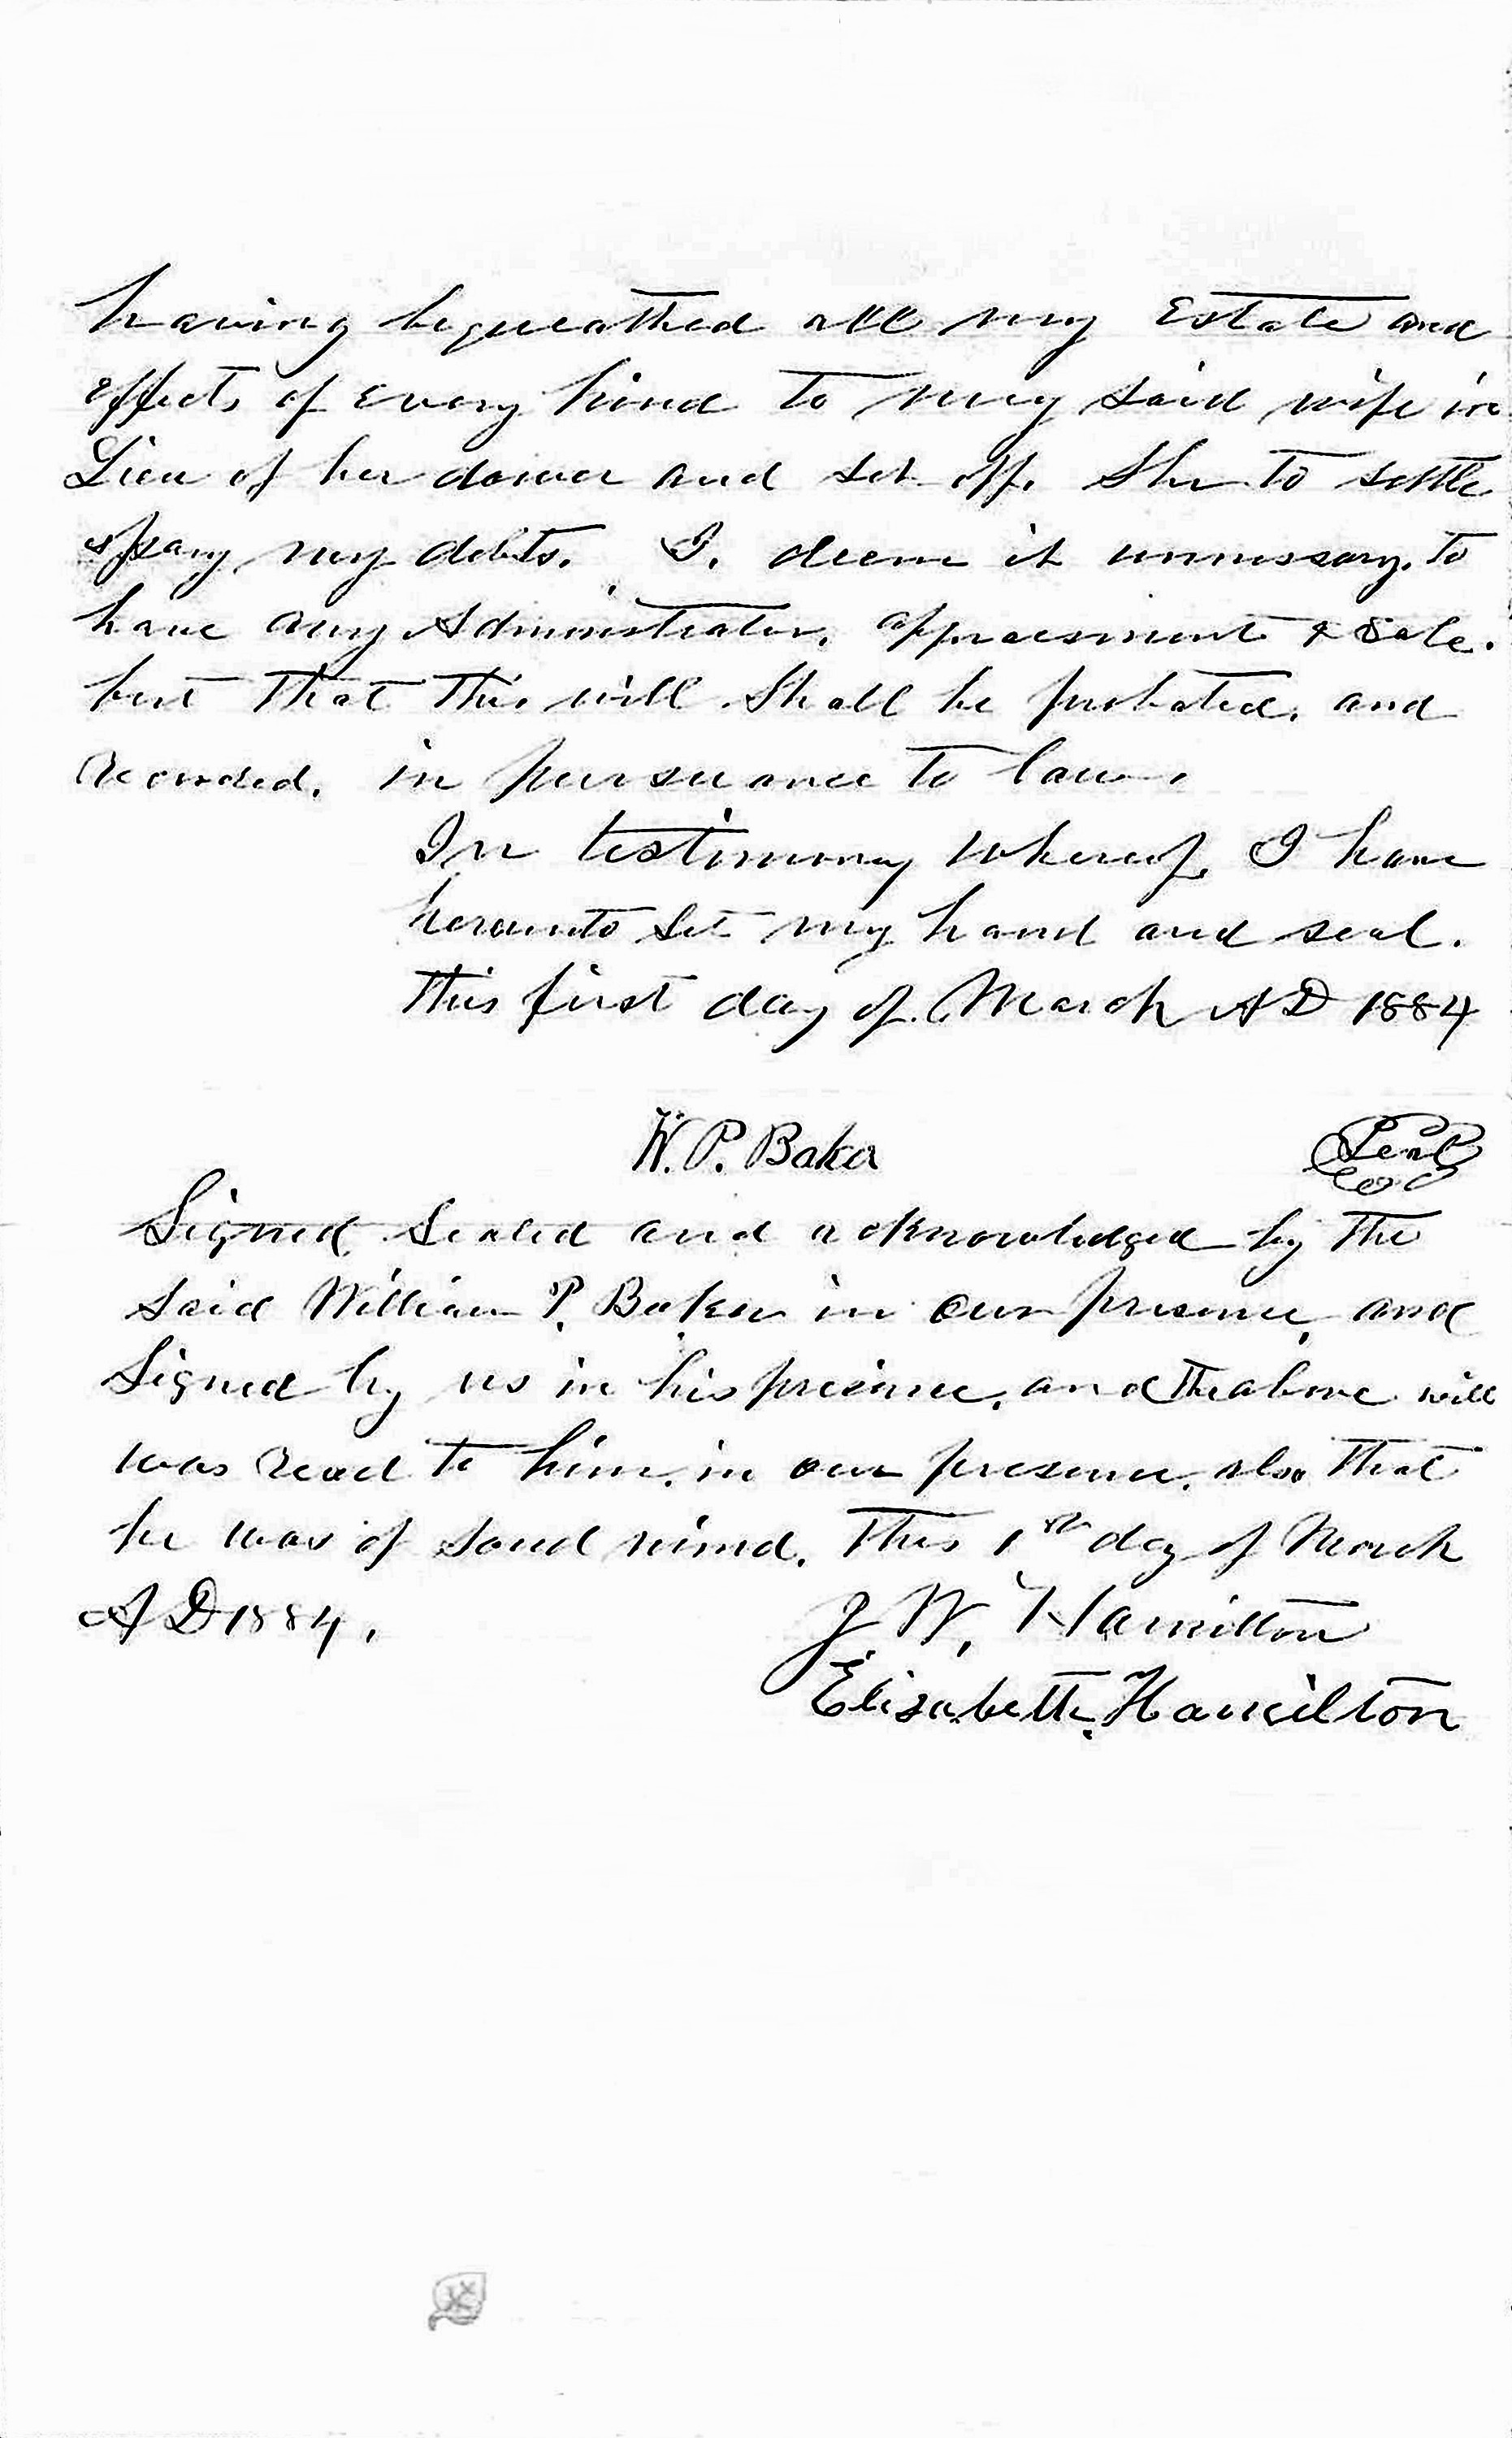 having bequeathed all my Estate and
effects of every kind to my said wife in
Lieu of her dower and set off. She to settle
& pay my debts. I. deem it unnessary. to
have any Administrator, appraesment & Sale.
but that this will Shall be probated. and
Recorded. in pursuance to law.
In testimony whereof, I have
herunto Set my hand and seal.
This first day of March AD 1884
W. P. Baker
Seal
Signed, Sealed and acknowledged by the
said William P. Baker in our presence, and
Signed by us in his presence. and the above will
was Read to him, in our presence. also that
he was of Sound mind. This 1st day of March
AD 1884.
J. W. Hamilton
Elisabeth. Hamilton